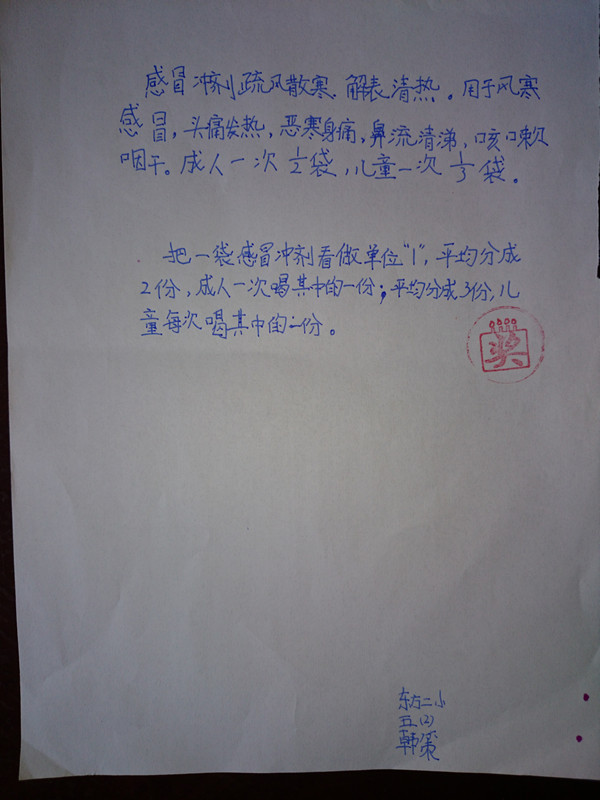 感冒冲剂疏风散寒.解表清热。用于风寒
感冒，头痛发热，恶寒身痛，鼻流清涕，咳嗽
咽干。成人一次1/2袋，儿童一次1/3袋。
把一袋感冒冲剂看做单位“1”，平均分成
2份，成人一次喝其中的一份；平均分成3份，儿
童每次喝其中的一份。
奖
东方二小
五.(2)
韩策